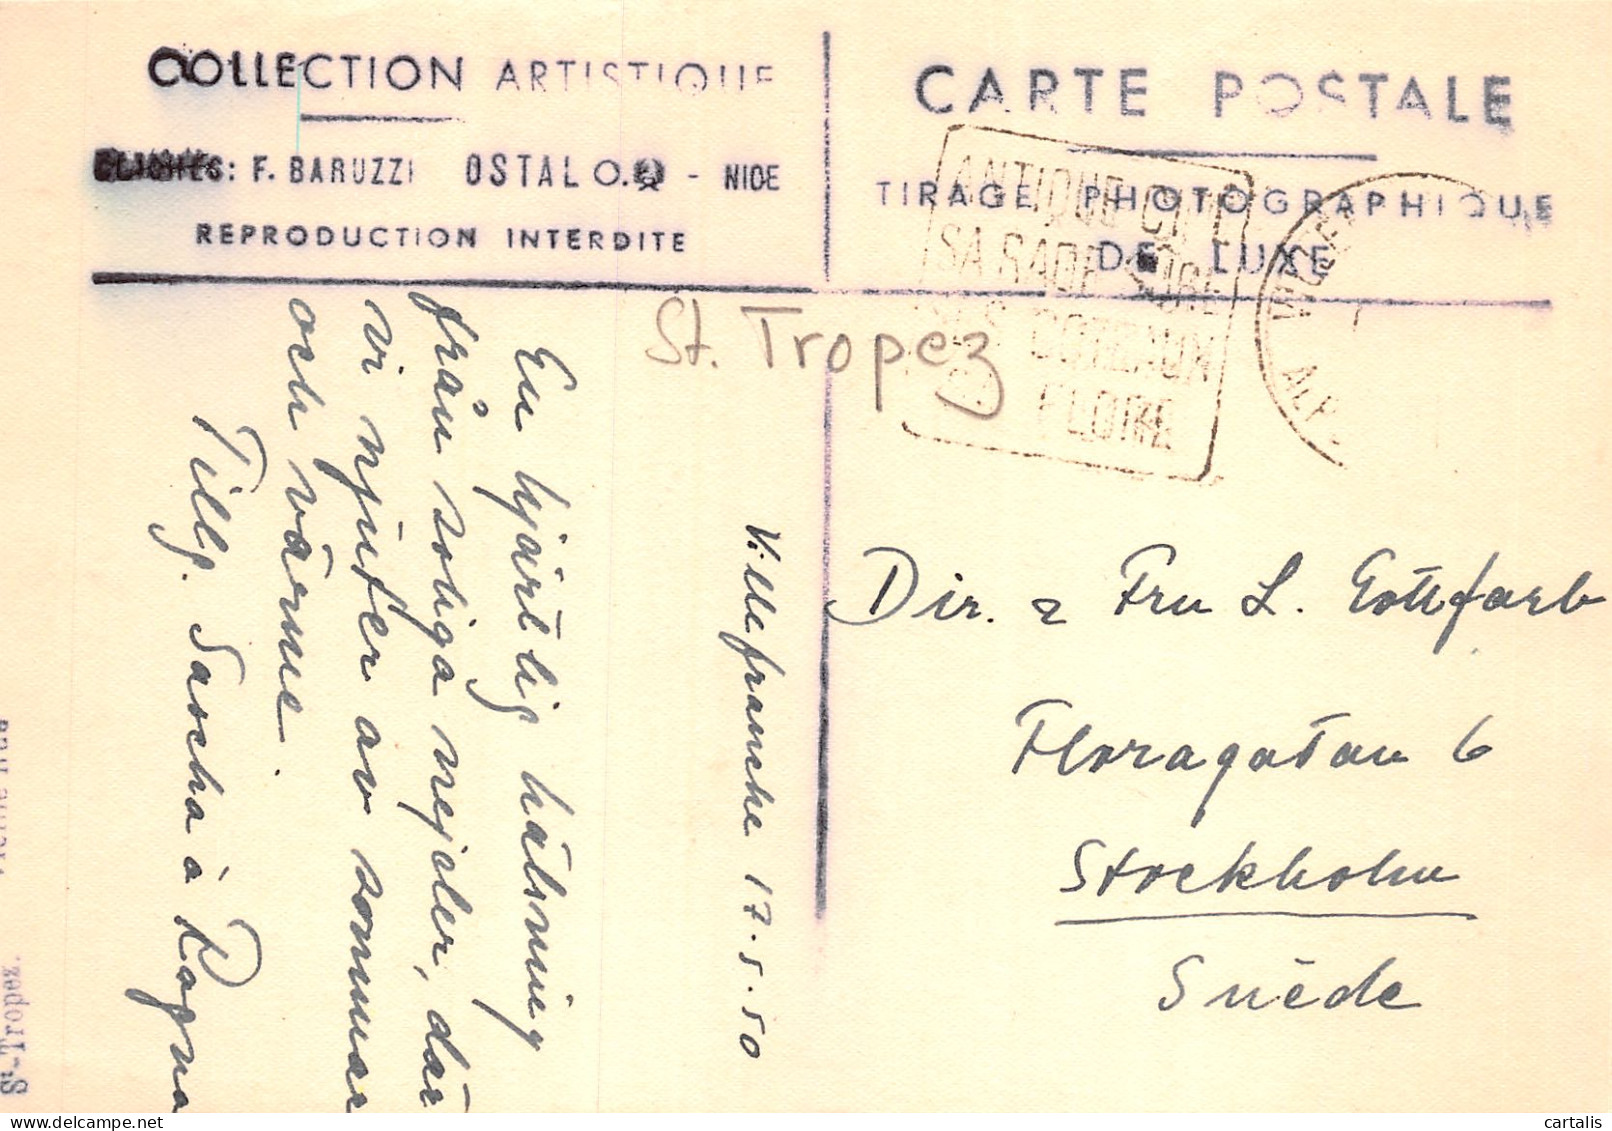 COLLECTION ARTISTIQUE
CLICHES: F. BARUZZI OSTAL O. - NICE
REPRODUCTION INTERDITE
CARTE POSTALE
TIRAGE PHOTOGRAPHIQUE
DE LUXE
ANTIQUE CITE
SA RADE
COTEAUX
FLORE
ALP
St. Tropez
Villefranche 17.5.50
En hjärtlig hälsning
från soliga nejder, där
vi njuter av sommar
och värme.
Tillg. Sascha à Ragna
Dir. & Fru L. Gottfarb
Floragatan 6
Stockholm
Suède
St-Tropez.
cartalis